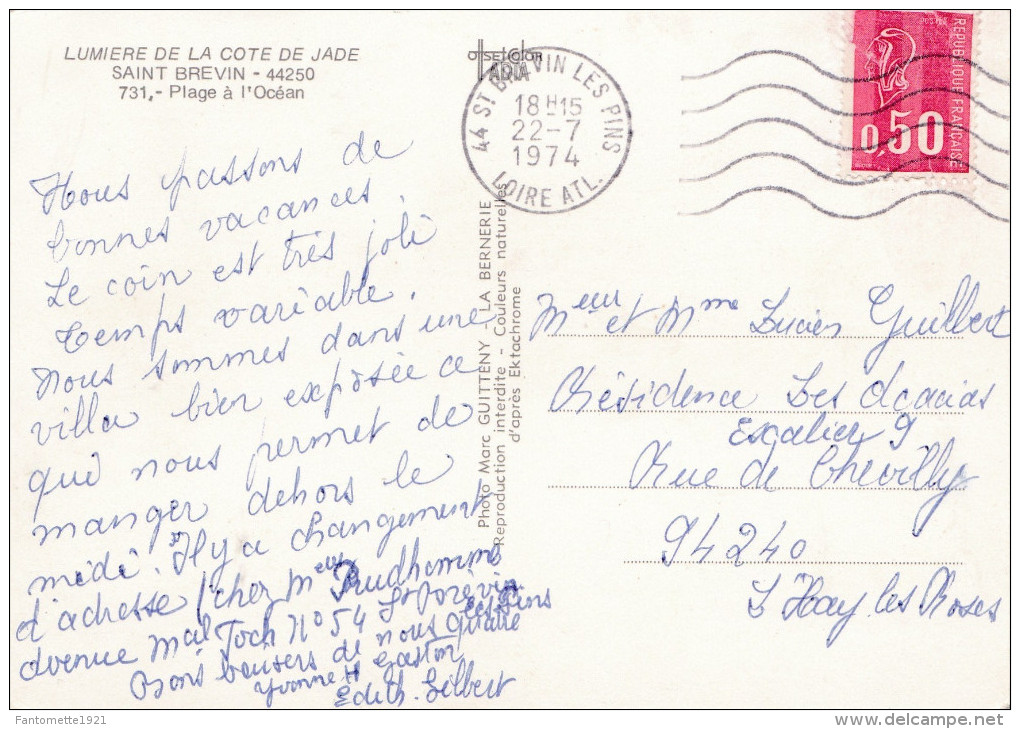 LUMIERE DE LA COTE DE JADE
SAINT BREVIN - 44250
731,- Plage à l'Océan
Nous passons de
bonnes vacances.
Le coin est très joli
temps variable.
Nous sommes dans une
villa bien exposée ce
qui nous permet de
manger dehors le
midi. Il y a changement
d'adresse chez Meur Prudhomme
avenue Mal Foch N° 54 St Brévin
les Pins
Bons baisers de nous quatre
Yvonne Gaston
Edith. Gilbert
OFFSETCOLOR
ARTA
Photo Marc GUITTENY - LA BERNERIE
Reproduction interdite - Couleurs naturelles
d'après Ektachrome
44 ST BREVIN LES PINS
18H15
22-7
1974
LOIRE ATL.
REPUBLIQUE FRANÇAISE
0,50
Meur et Mme Lucien Guilbert
Résidence Les Acacias
Escalier 9
Rue de Chevilly
94240
L'Hay les Roses
Fantomette1921
delcampe.net